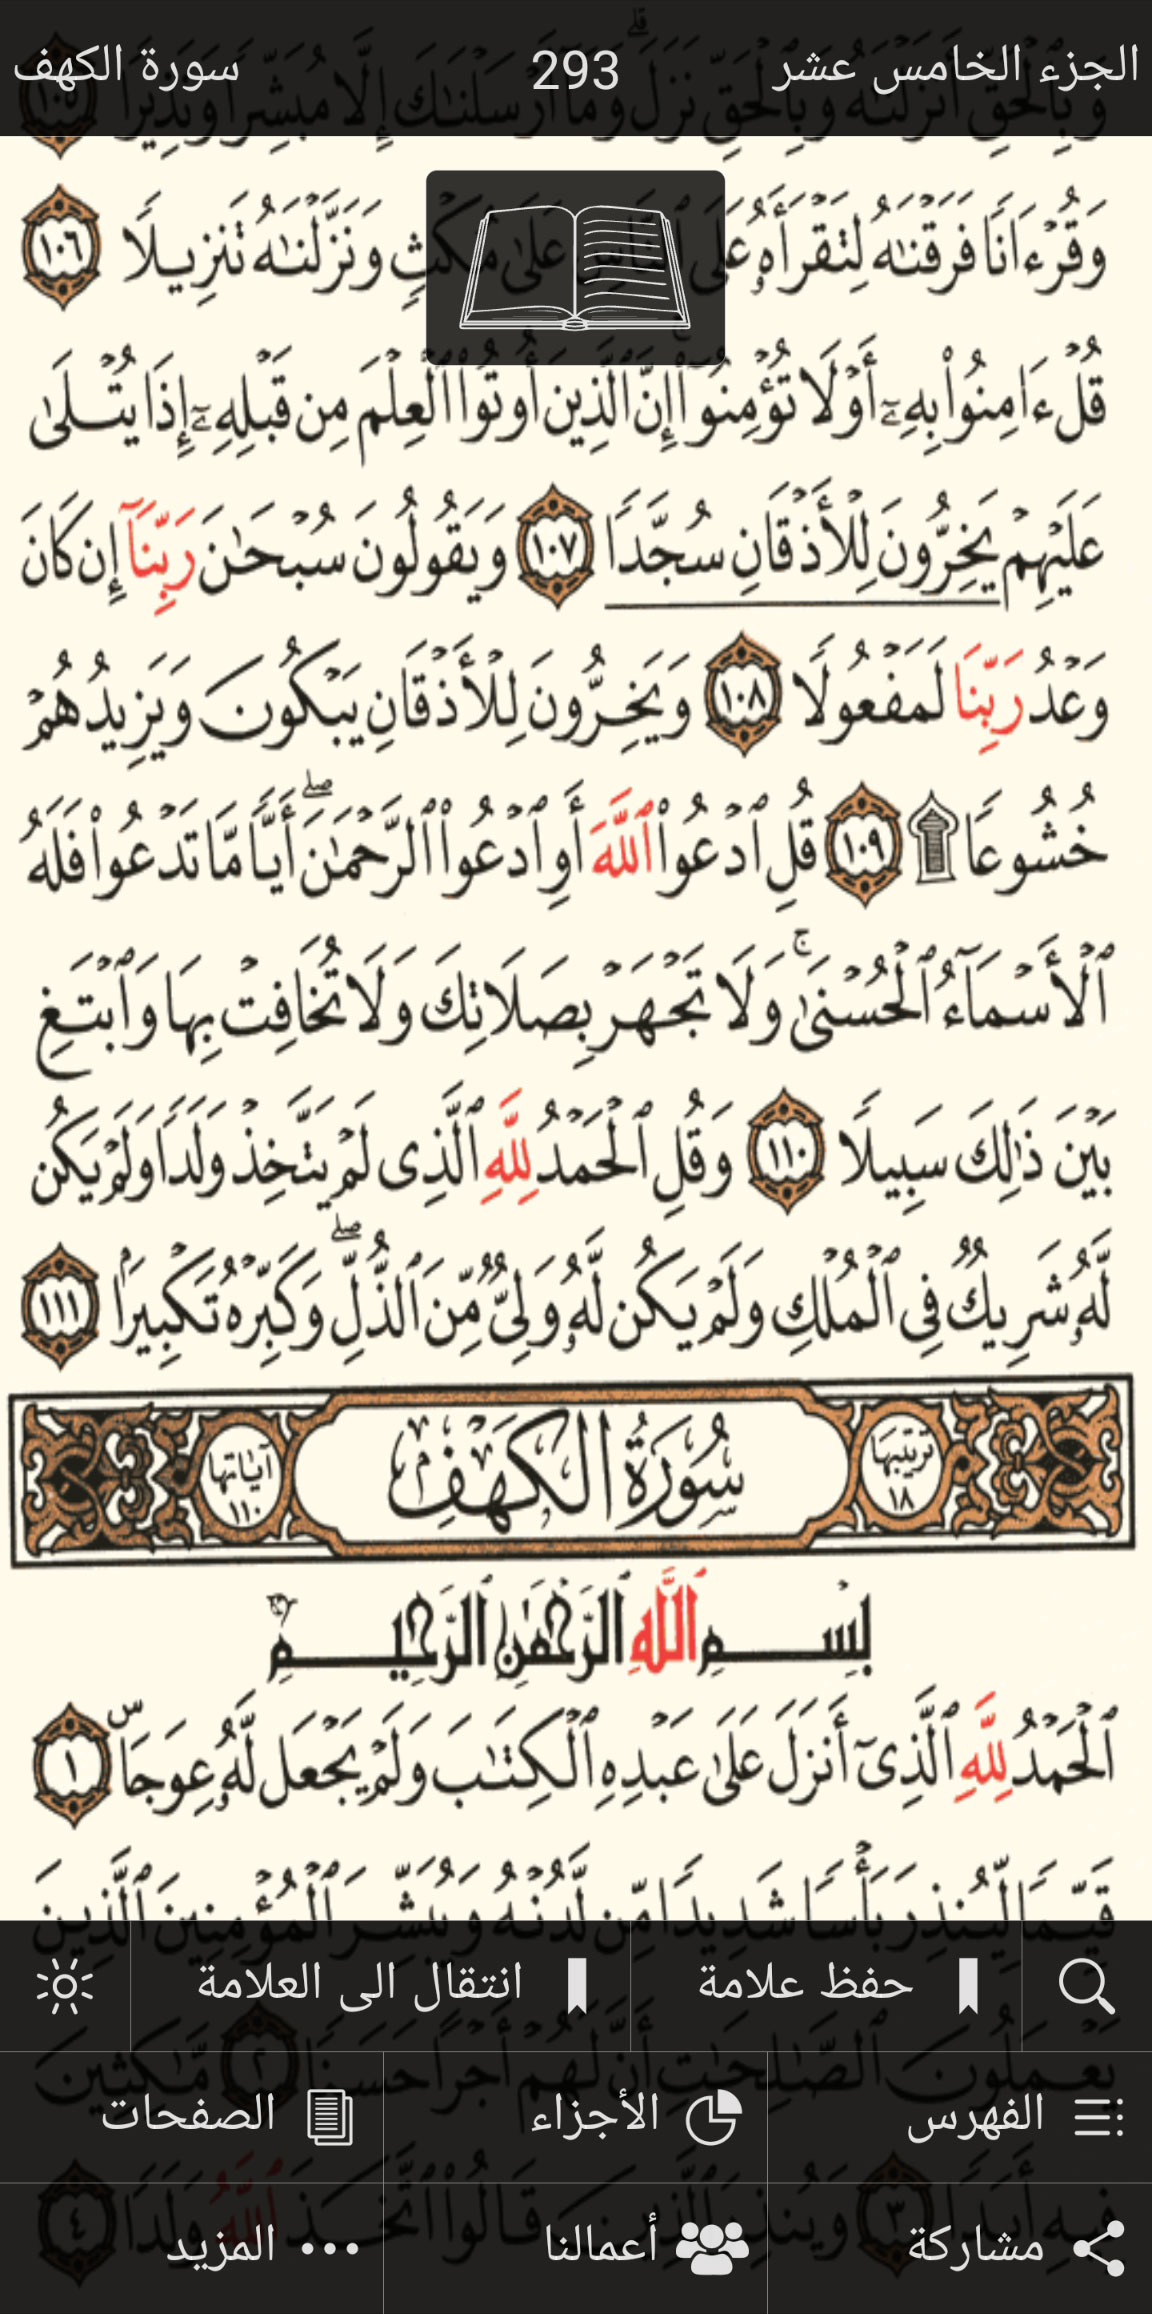 الجزء الخامس عشر 293 سورة الكهف
وَبِالْحَقِّ أَنزَلْنَٰهُ وَبِالْحَقِّ نَزَلَ ۗ وَمَا أَرْسَلْنَٰكَ إِلَّا مُبَشِّرًا وَنَذِيرًا ١٠٥
وَقُرْءَانًا فَرَقْنَٰهُ لِتَقْرَأَهُۥ عَلَى ٱلنَّاسِ عَلَىٰ مُكْثٍ وَنَزَّلْنَٰهُ تَنزِيلًا ١٠٦
قُلْ ءَامِنُوا۟ بِهِۦٓ أَوْ لَا تُؤْمِنُوٓا۟ ۚ إِنَّ ٱلَّذِينَ أُوتُوا۟ ٱلْعِلْمَ مِن قَبْلِهِۦٓ إِذَا يُتْلَىٰ
عَلَيْهِمْ يَخِرُّونَ لِلْأَذْقَانِ سُجَّدًا ١٠٧ وَيَقُولُونَ سُبْحَٰنَ رَبِّنَآ إِن كَانَ
وَعْدُ رَبِّنَا لَمَفْعُولًا ١٠٨ وَيَخِرُّونَ لِلْأَذْقَانِ يَبْكُونَ وَيَزِيدُهُمْ
خُشُوعًا ۩ ١٠٩ قُلِ ٱدْعُوا۟ ٱللَّهَ أَوِ ٱدْعُوا۟ ٱلرَّحْمَٰنَ ۖ أَيًّا مَّا تَدْعُوا۟ فَلَهُ
ٱلْأَسْمَآءُ ٱلْحُسْنَىٰ ۚ وَلَا تَجْهَرْ بِصَلَاتِكَ وَلَا تُخَافِتْ بِهَا وَٱبْتَغِ
بَيْنَ ذَٰلِكَ سَبِيلًا ١١٠ وَقُلِ ٱلْحَمْدُ لِلَّهِ ٱلَّذِى لَمْ يَتَّخِذْ وَلَدًا وَلَمْ يَكُن
لَّهُۥ شَرِيكٌ فِى ٱلْمُلْكِ وَلَمْ يَكُن لَّهُۥ وَلِىٌّ مِّنَ ٱلذُّلِّ ۖ وَكَبِّرْهُ تَكْبِيرًۢا ١١١
ترتيبها ١٨ سُورَةُ الكَهْفِ آياتها ١١٠
بِسْمِ ٱللَّهِ ٱلرَّحْمَٰنِ ٱلرَّحِيمِ
ٱلْحَمْدُ لِلَّهِ ٱلَّذِىٓ أَنزَلَ عَلَىٰ عَبْدِهِ ٱلْكِتَٰبَ وَلَمْ يَجْعَل لَّهُۥ عِوَجَاۜ ١
قَيِّمًا لِّيُنذِرَ بَأْسًا شَدِيدًا مِّن لَّدُنْهُ وَيُبَشِّرَ ٱلْمُؤْمِنِينَ ٱلَّذِينَ
حفظ علامة انتقال الى العلامة
يَعْمَلُونَ ٱلصَّٰلِحَٰتِ أَنَّ لَهُمْ أَجْرًا حَسَنًا ٢ مَّٰكِثِينَ
الفهرس الأجزاء الصفحات
فِيهِ أَبَدًا ٣ وَيُنذِرَ ٱلَّذِينَ قَالُوا۟ ٱتَّخَذَ ٱللَّهُ وَلَدًا ٤
مشاركة أعمالنا المزيد